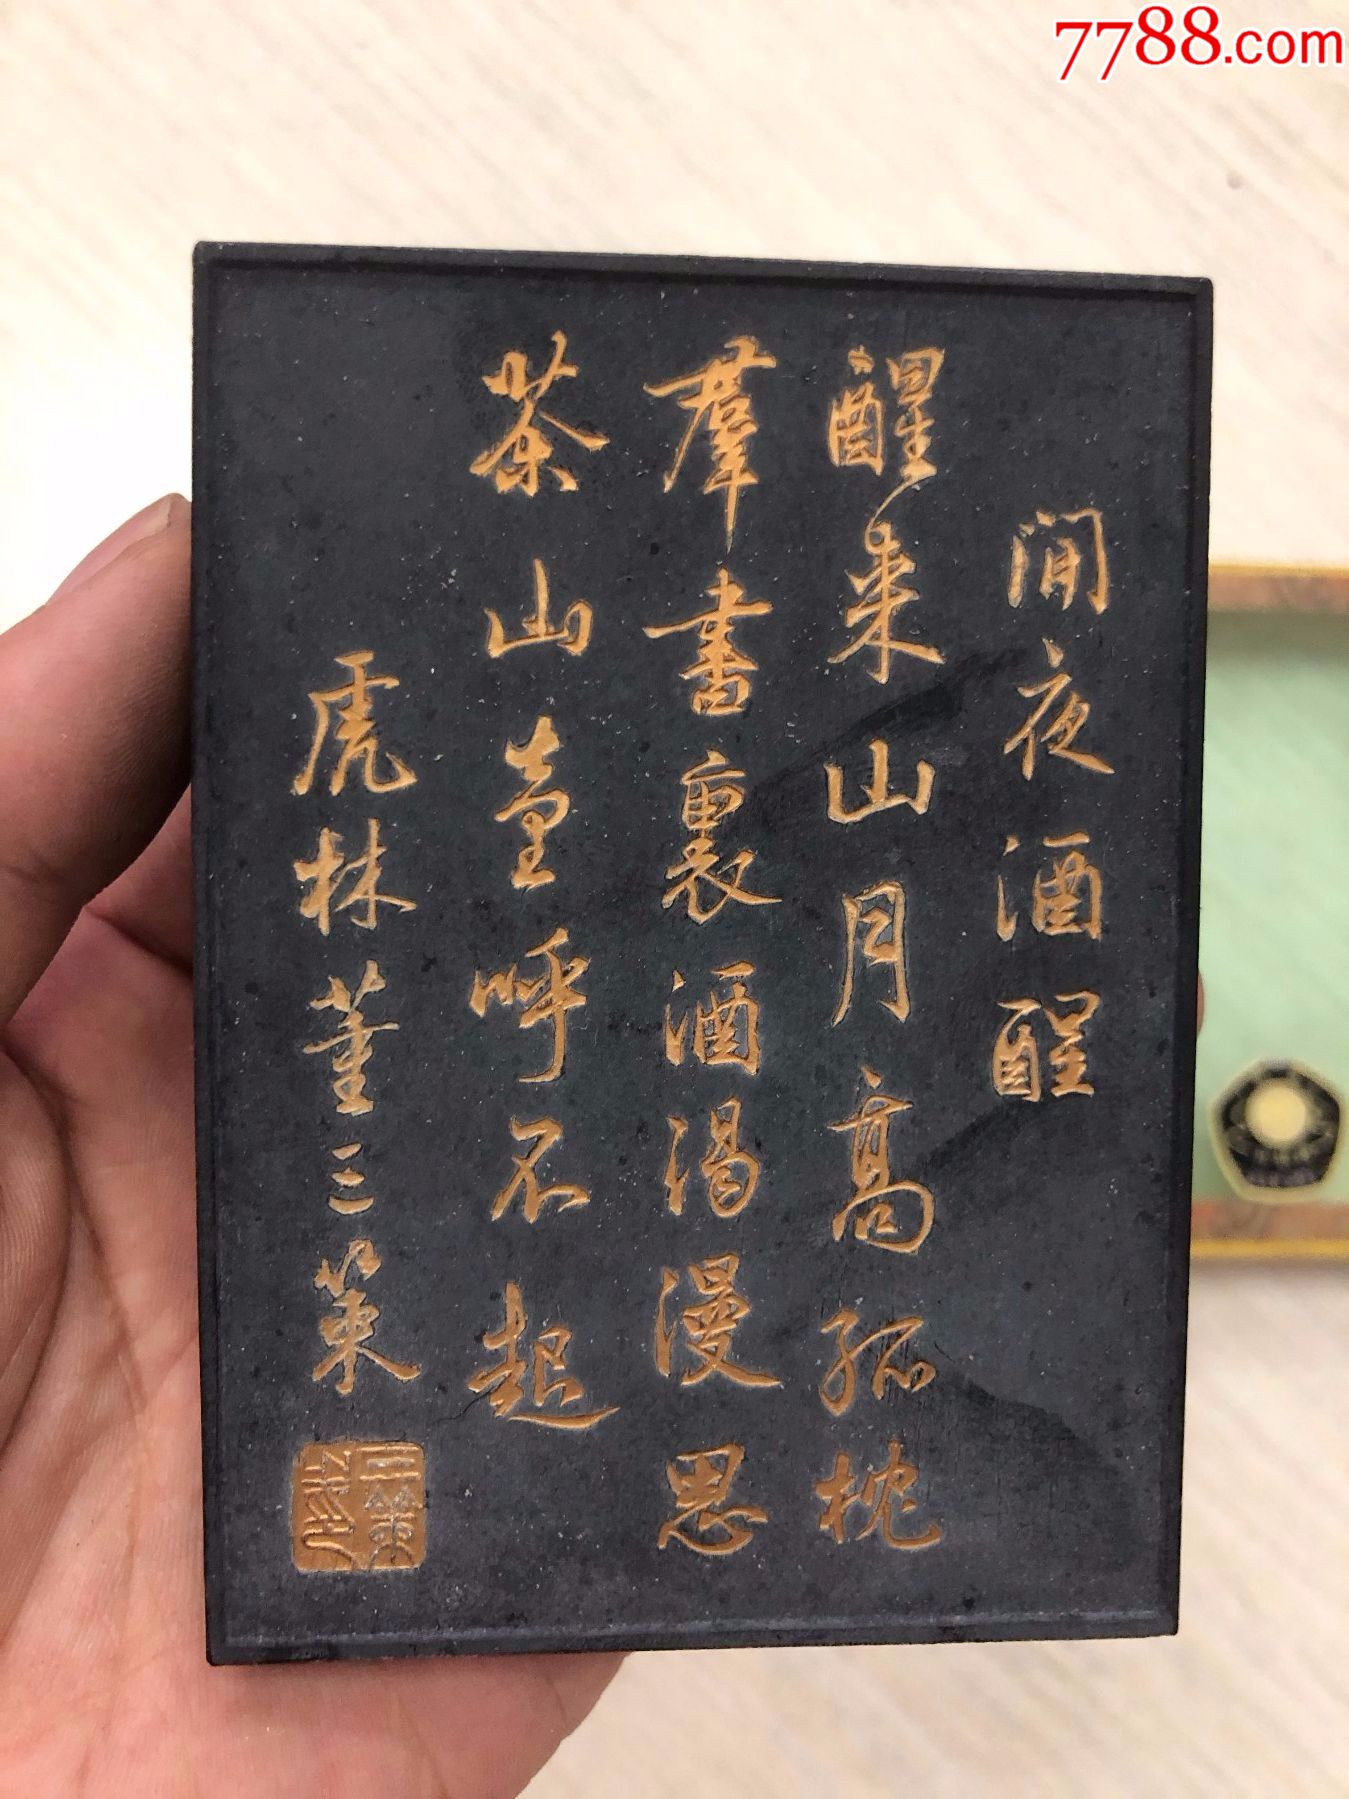 7788.com
閒夜酒醒
醒来山月高孤枕
羣書裏酒渴漫思
茶山童呼不起
虎林董三策